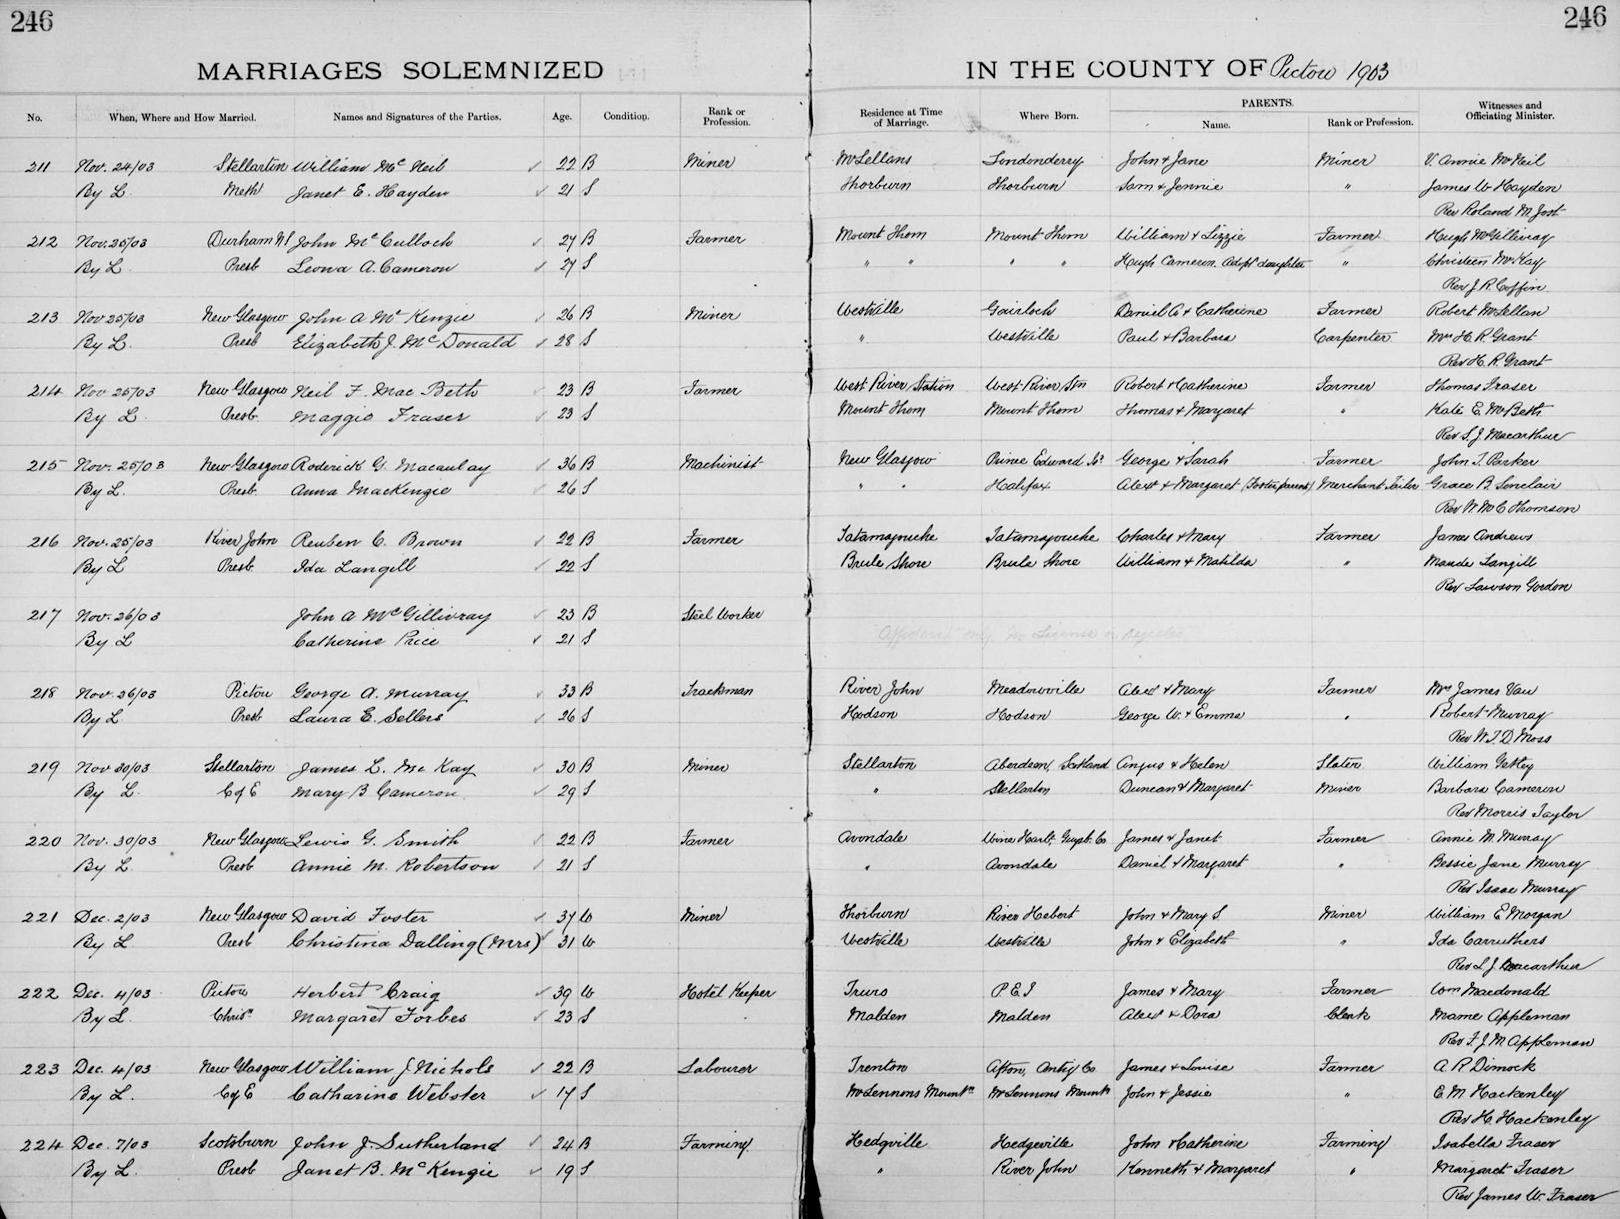 246
246
MARRIAGES SOLEMNIZED
IN THE COUNTY OF Pictou 1903
No. When, Where and How Married. Names and Signatures of the Parties. Age. Condition. Rank or Profession. Residence at Time of Marriage. Where Born. PARENTS. Name. Rank or Profession. Witnesses and Officiating Minister.
211 Nov. 24/03 Stellarton William Mc Neil 22 B Miner McLellans Londonderry John & Jane Miner V. Annie McNeil
By L. Meth Janet E. Hayden 21 S Thorburn Thorburn Sam & Jennie " James W Hayden
Rev Roland M Jost
212 Nov. 25/03 Durham John Mc Culloch 27 B Farmer Mount Thom Mount Thom William & Lizzie Farmer Hugh McGillivray
By L Presb Leona A. Cameron 27 S " " " " Hugh Cameron. Adopt daughter " Christeen McKay
Rev J. R. Coffin
213 Nov 25/03 New Glasgow John A Mc Kenzie 26 B Miner Westville Gairloch Daniel A & Catherine Farmer Robert McLellan
By L. Presb Elizabeth J. McDonald 28 S " Westville Paul & Barbara Carpenter Mrs H. R. Grant
Rev H. R. Grant
214 Nov 25/03 New Glasgow Neil F. Mac Beth 23 B Farmer West River Station West River Stn Robert & Catherine Farmer Thomas Fraser
By L. Presb. Maggie Fraser 23 S Mount Thom Mount Thom Thomas & Margaret " Kate E. McBeth
Rev S. J. Macarthur
215 Nov. 25/03 New Glasgow Roderick G. Macaulay 36 B Machinist New Glasgow Prince Edward Isd George & Sarah Farmer John T. Parker
By L. Presb. Anna MacKenzie 26 S " " Halifax Alexr & Margaret (Foster parents) Merchant Tailor Grace B. Sinclair
Rev W. McC Thomson
216 Nov. 25/03 River John Reuben C. Brown 22 B Farmer Tatamagouche Tatamagouche Charles & Mary Farmer James Andrews
By L Presb. Ida Langill 22 S Brule Shore Brule Shore William & Matilda " Maude Langill
Rev Lawson Gordon
217 Nov. 26/03 John A McGillivray 23 B Steel Worker
By L Catherine Price 21 S
218 Nov. 26/03 Pictou George A. Murray 33 B Trackman River John Meadowville Alexr & Mary Farmer Mrs James Vau
By L Presb Laura E. Sellers 26 S Hodson Hodson George W. & Emma " Robert Murray
Rev W. T. D Moss
219 Nov 30/03 Stellarton James L. Mc Kay 30 B Miner Stellarton Aberdeen, Scotland Angus & Helen Slater William
By L. C of E Mary B Cameron 29 S " Stellarton Duncan & Margaret Miner Barbara Cameron
Rev Morris Taylor
220 Nov. 30/03 New Glasgow Lewis G. Smith 22 B Farmer Avondale Wine Harb, Guysb. Co James & Janet Farmer Annie M. Murray
By L. Presb Annie M. Robertson 21 S " Avondale Daniel & Margaret " Bessie Jane Murray
Rev Isaac Murray
221 Dec. 2/03 New Glasgow David Foster 37 W Miner Thorburn River Hebert John & Mary S Miner William E Morgan
By L Presb Christina Dalling (Mrs) 31 W Westville Westville John & Elizabeth " Ida Carruthers
Rev S. J. Macarthur
222 Dec. 4/03 Pictou Herbert Craig 39 W Hotel Keeper Truro P E I James & Mary Farmer Wm Macdonald
By L. Chrisn Margaret Forbes 23 S Malden Malden Alexr & Dora Clerk Mame Appleman
Rev F. J. M Appleman
223 Dec. 4/03 New Glasgow William J Nichols 22 B Labourer Trenton Afton, Antig Co James & Louise Farmer A R Dimock
By L. C of E Catharine Webster 17 S McLennons Mountn McLennons Mountn John & Jessie " E. M. Hackenley
Rev H. Hackenley
224 Dec. 7/03 Scotsburn John J. Sutherland 24 B Farming Hedgville Hedgeville John & Catherine Farming Isabella Fraser
By L. Presb Janet B. McKenzie 19 S " River John Kenneth & Margaret " Margaret Fraser
Rev James W. Fraser